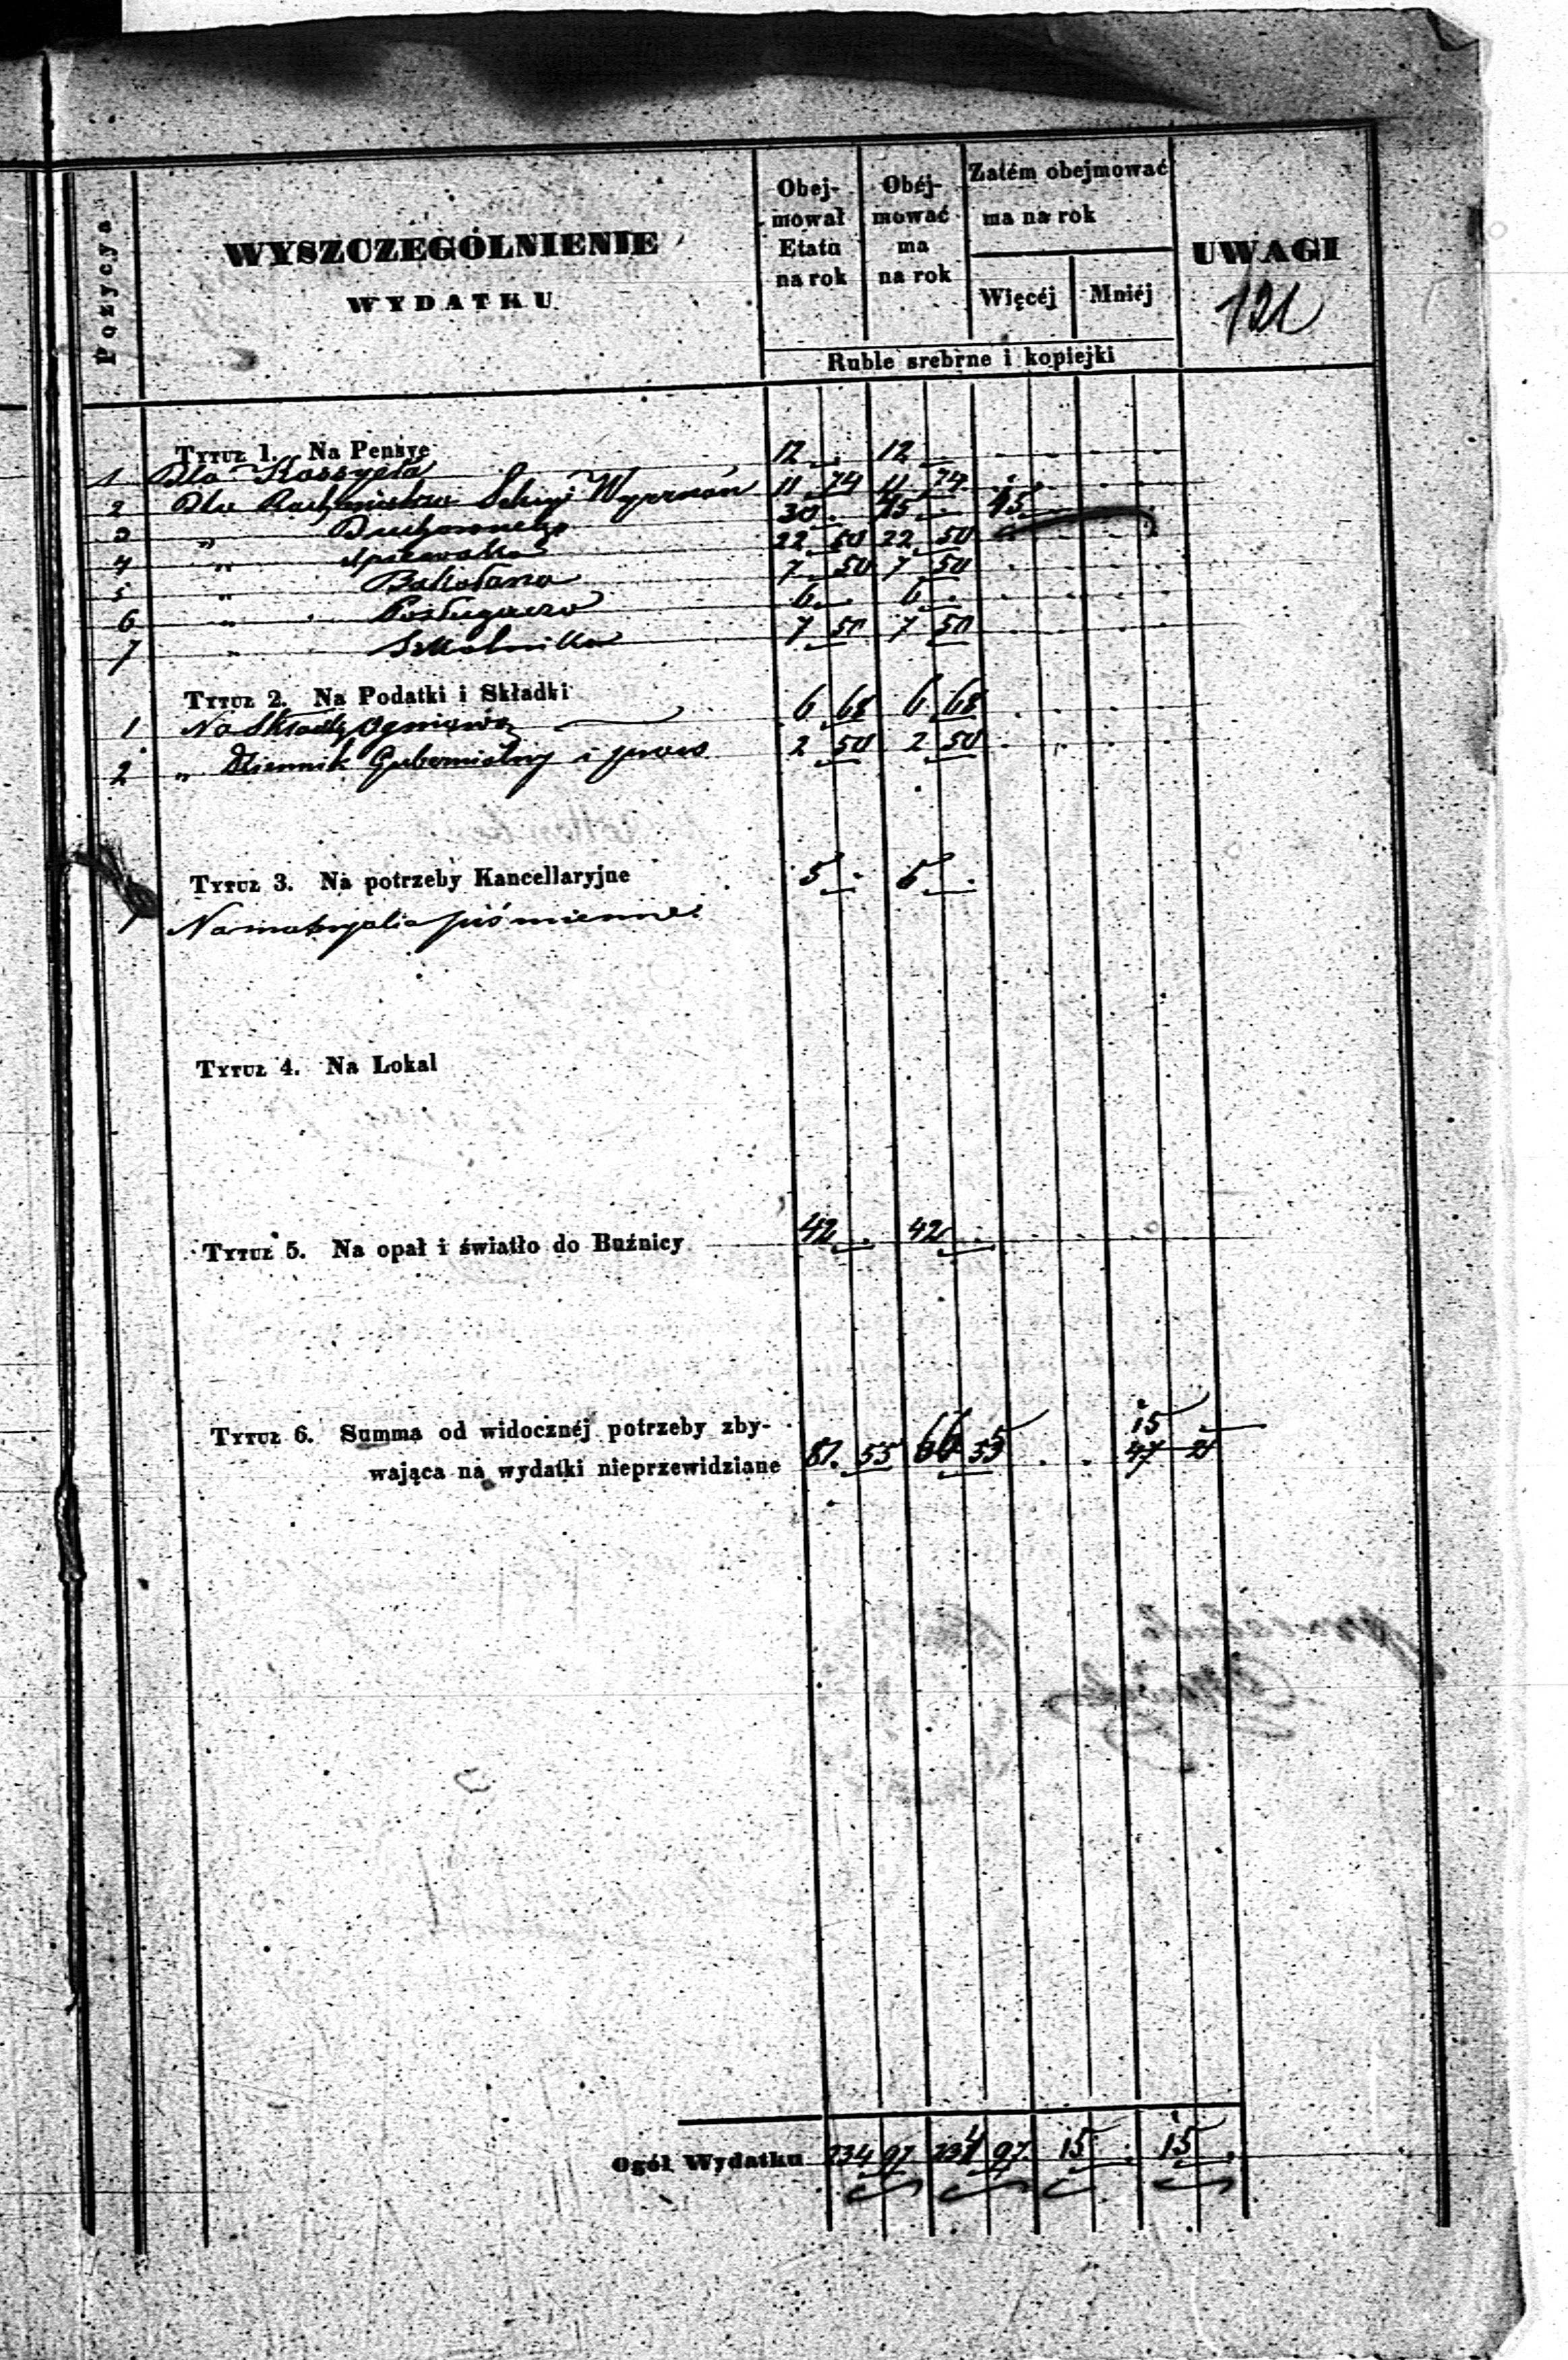 Pozycya
WYSZCZEGÓLNIENIE
WYDATKU
Obej-
mował
Etatu
na rok
Obéj-
mować
ma
na rok
Zatém obejmować
ma na rok
Więcéj
Mniéj
UWAGI
121
Ruble srebrne i kopiejki
Tytuł 1. Na Pensye
1 Dla Kassyera 12 . 12 .
2 Dla Rachmistrza Sekcyi Wyznań 11 74 11 74
3 „ Duchownego 30 . 45 . 15
4 „ 22 50 22 50
5 „ Bakałarza 7 50 7 50
6 „ Posługacza 6 . 6 .
7 „ Szkolnika 7 50 7 50
Tytuł 2. Na Podatki i Składki
1 Na Składkę Ogniową 6 68 6 68
2 „ Dziennik Gubernialny i praw 2 50 2 50
Tytuł 3. Na potrzeby Kancellaryjne 5 . 5 .
1 Na materyalia piśmienne
Tytuł 4. Na Lokal
Tytuł 5. Na opał i światło do Buźnicy 42 . 42 .
Tytuł 6. Summa od widocznéj potrzeby zby- 15
wająca na wydatki nieprzewidziane 81. 55 66 55 47 21
Ogół Wydatku 234 97 234 97 15 . 15 .